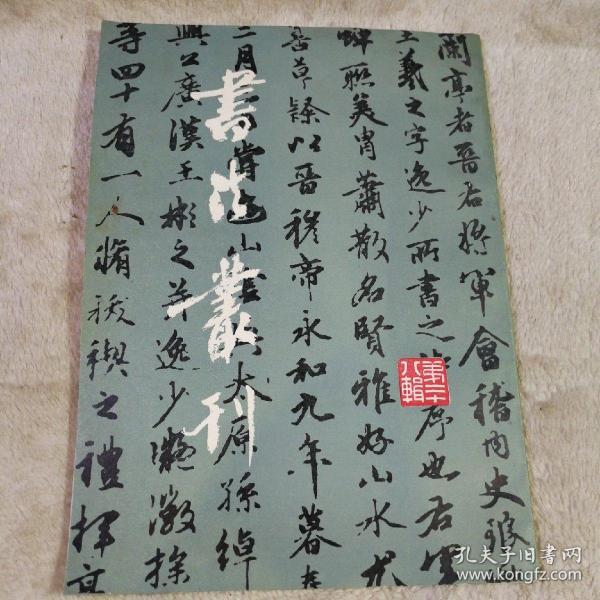 書法叢刊
第二十八輯
蘭亭者晉右將軍會稽內史瑯
王羲之字逸少所書之詩序也右軍
蟬聯美胄蕭散名賢雅好山水尤
善草隸以晉穆帝永和九年暮春
三月
遊山
太原孫綽
興公廣漢王彬之并逸少凝徽操
等四十有一人脩祓禊之禮揮毫
孔夫子旧书网
www.kongfz.com